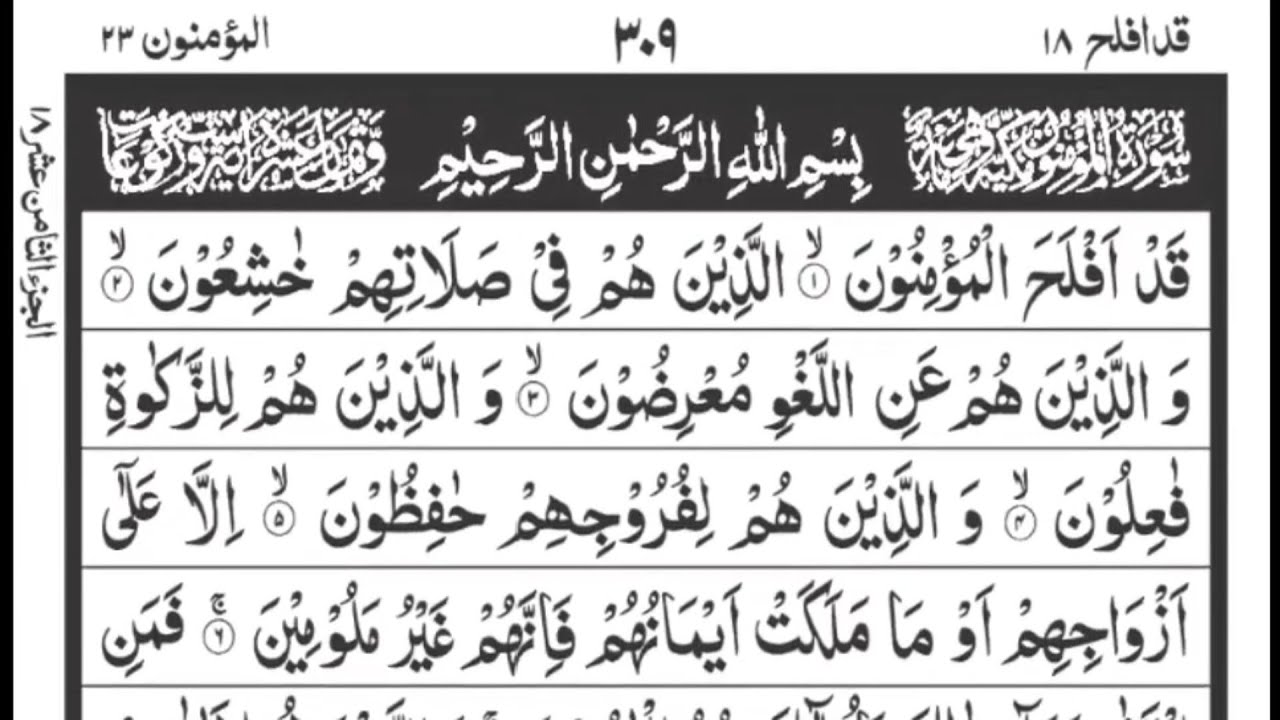 قد افلح ١٨
٣٠٩
المؤمنون ٢٣
الجزء الثامن عشر ١٨
سُوْرَةُ الْمُؤْمِنُوْنَ مَكِّيَّةٌ وَّهِيَ مِائَةٌ
بِسْمِ اللّٰهِ الرَّحْمٰنِ الرَّحِيْمِ
قَدْ اَفْلَحَ الْمُؤْمِنُوْنَ ۙ‏﴿۱﴾ الَّذِيْنَ هُمْ فِيْ صَلَاتِهِمْ خٰشِعُوْنَ ۙ‏﴿۲﴾
وَ الَّذِيْنَ هُمْ عَنِ اللَّغْوِ مُعْرِضُوْنَ ۙ‏﴿۳﴾ وَ الَّذِيْنَ هُمْ لِلزَّكٰوةِ
فٰعِلُوْنَ ۙ‏﴿۴﴾ وَ الَّذِيْنَ هُمْ لِفُرُوْجِهِمْ حٰفِظُوْنَ ۙ‏﴿۵﴾ اِلَّا عَلٰٓى
اَزْوَاجِهِمْ اَوْ مَا مَلَكَتْ اَيْمَانُهُمْ فَاِنَّهُمْ غَيْرُ مَلُوْمِيْنَ ۚ‏﴿۶﴾ فَمَنِ